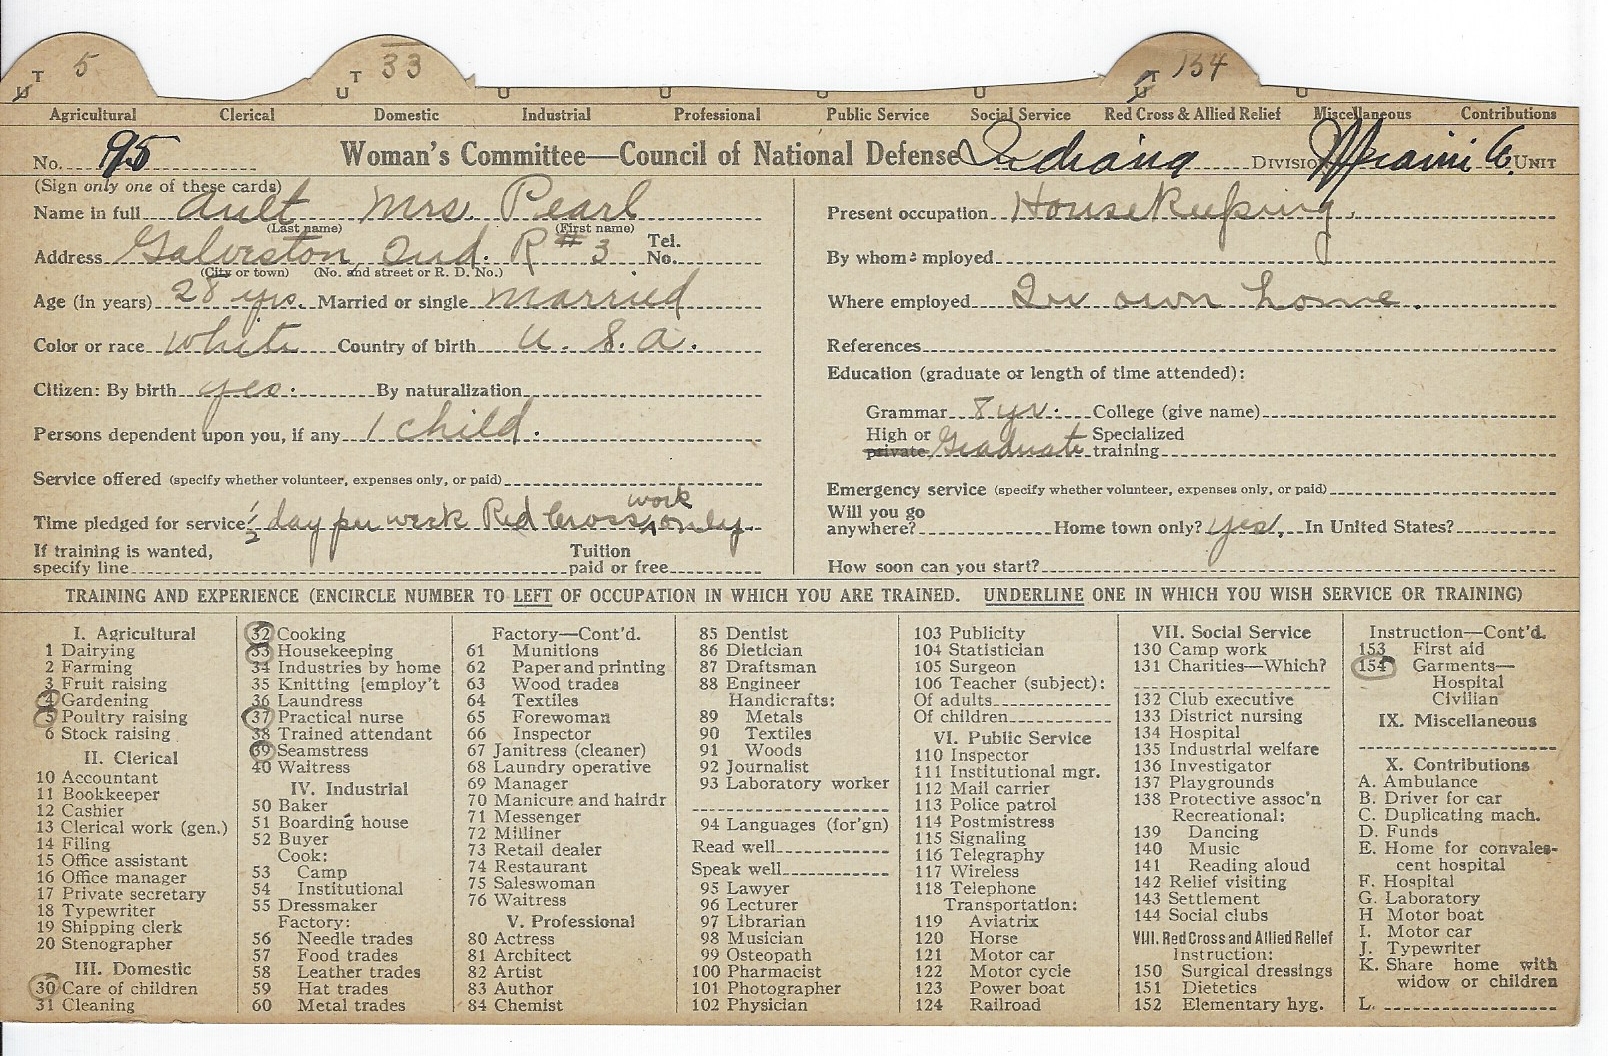 T 5 T 33 T 154
U U U U U U U U U
Agricultural Clerical Domestic Industrial Professional Public Service Social Service Red Cross & Allied Relief Miscellaneous Contributions
No. 95 Woman's Committee—Council of National Defense Indiana Division Miami Co. Unit
(Sign only one of these cards)
Name in full Ault Mrs. Pearl
(Last name) (First name)
Address Galveston Ind. R # 3 Tel. No.
(City or town) (No. and street or R. D. No.)
Age (in years) 28 yrs. Married or single married
Color or race white Country of birth U. S. A.
Citizen: By birth yes. By naturalization
Persons dependent upon you, if any 1 child.
Service offered (specify whether volunteer, expenses only, or paid)
Time pledged for service: 1/2 day per week Red Cross work only
If training is wanted, specify line Tuition paid or free
Present occupation Housekeeping.
By whom employed
Where employed In own home.
References
Education (graduate or length of time attended):
Grammar 8 yr. College (give name)
High or private Graduate Specialized training
Emergency service (specify whether volunteer, expenses only, or paid)
Will you go anywhere? Home town only? yes. In United States?
How soon can you start?
TRAINING AND EXPERIENCE (ENCIRCLE NUMBER TO LEFT OF OCCUPATION IN WHICH YOU ARE TRAINED. UNDERLINE ONE IN WHICH YOU WISH SERVICE OR TRAINING)
I. Agricultural
1 Dairying
2 Farming
3 Fruit raising
4 Gardening
5 Poultry raising
6 Stock raising
II. Clerical
10 Accountant
11 Bookkeeper
12 Cashier
13 Clerical work (gen.)
14 Filing
15 Office assistant
16 Office manager
17 Private secretary
18 Typewriter
19 Shipping clerk
20 Stenographer
III. Domestic
30 Care of children
31 Cleaning
32 Cooking
33 Housekeeping
34 Industries by home
35 Knitting [employ't
36 Laundress
37 Practical nurse
38 Trained attendant
39 Seamstress
40 Waitress
IV. Industrial
50 Baker
51 Boarding house
52 Buyer
Cook:
53 Camp
54 Institutional
55 Dressmaker
Factory:
56 Needle trades
57 Food trades
58 Leather trades
59 Hat trades
60 Metal trades
Factory—Cont'd.
61 Munitions
62 Paper and printing
63 Wood trades
64 Textiles
65 Forewoman
66 Inspector
67 Janitress (cleaner)
68 Laundry operative
69 Manager
70 Manicure and hairdr
71 Messenger
72 Milliner
73 Retail dealer
74 Restaurant
75 Saleswoman
76 Waitress
V. Professional
80 Actress
81 Architect
82 Artist
83 Author
84 Chemist
85 Dentist
86 Dietician
87 Draftsman
88 Engineer
Handicrafts:
89 Metals
90 Textiles
91 Woods
92 Journalist
93 Laboratory worker
94 Languages (for'gn)
Read well
Speak well
95 Lawyer
96 Lecturer
97 Librarian
98 Musician
99 Osteopath
100 Pharmacist
101 Photographer
102 Physician
103 Publicity
104 Statistician
105 Surgeon
106 Teacher (subject):
Of adults
Of children
VI. Public Service
110 Inspector
111 Institutional mgr.
112 Mail carrier
113 Police patrol
114 Postmistress
115 Signaling
116 Telegraphy
117 Wireless
118 Telephone
Transportation:
119 Aviatrix
120 Horse
121 Motor car
122 Motor cycle
123 Power boat
124 Railroad
VII. Social Service
130 Camp work
131 Charities—Which?
132 Club executive
133 District nursing
134 Hospital
135 Industrial welfare
136 Investigator
137 Playgrounds
138 Protective assoc'n
Recreational:
139 Dancing
140 Music
141 Reading aloud
142 Relief visiting
143 Settlement
144 Social clubs
VIII. Red Cross and Allied Relief
Instruction:
150 Surgical dressings
151 Dietetics
152 Elementary hyg.
Instruction—Cont'd.
153 First aid
154 Garments—
Hospital
Civilian
IX. Miscellaneous
X. Contributions
A. Ambulance
B. Driver for car
C. Duplicating mach.
D. Funds
E. Home for convales-
cent hospital
F. Hospital
G. Laboratory
H Motor boat
I. Motor car
J. Typewriter
K. Share home with
widow or children
L.